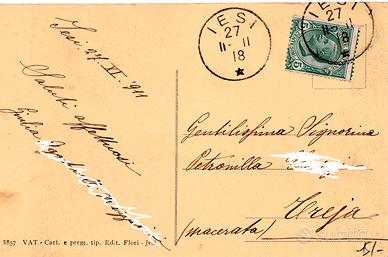 Jesi, 27. II. 911
Saluti affettuosi
Giulia
IESI
27
11- 11
18
IESI
27
11- 11
18
5
Gentilissima Signorina
Petronilla
Treja
(macerata)
8857 VAT - Cart. e prem. tip. Edit. Flori - Jesi
5/-